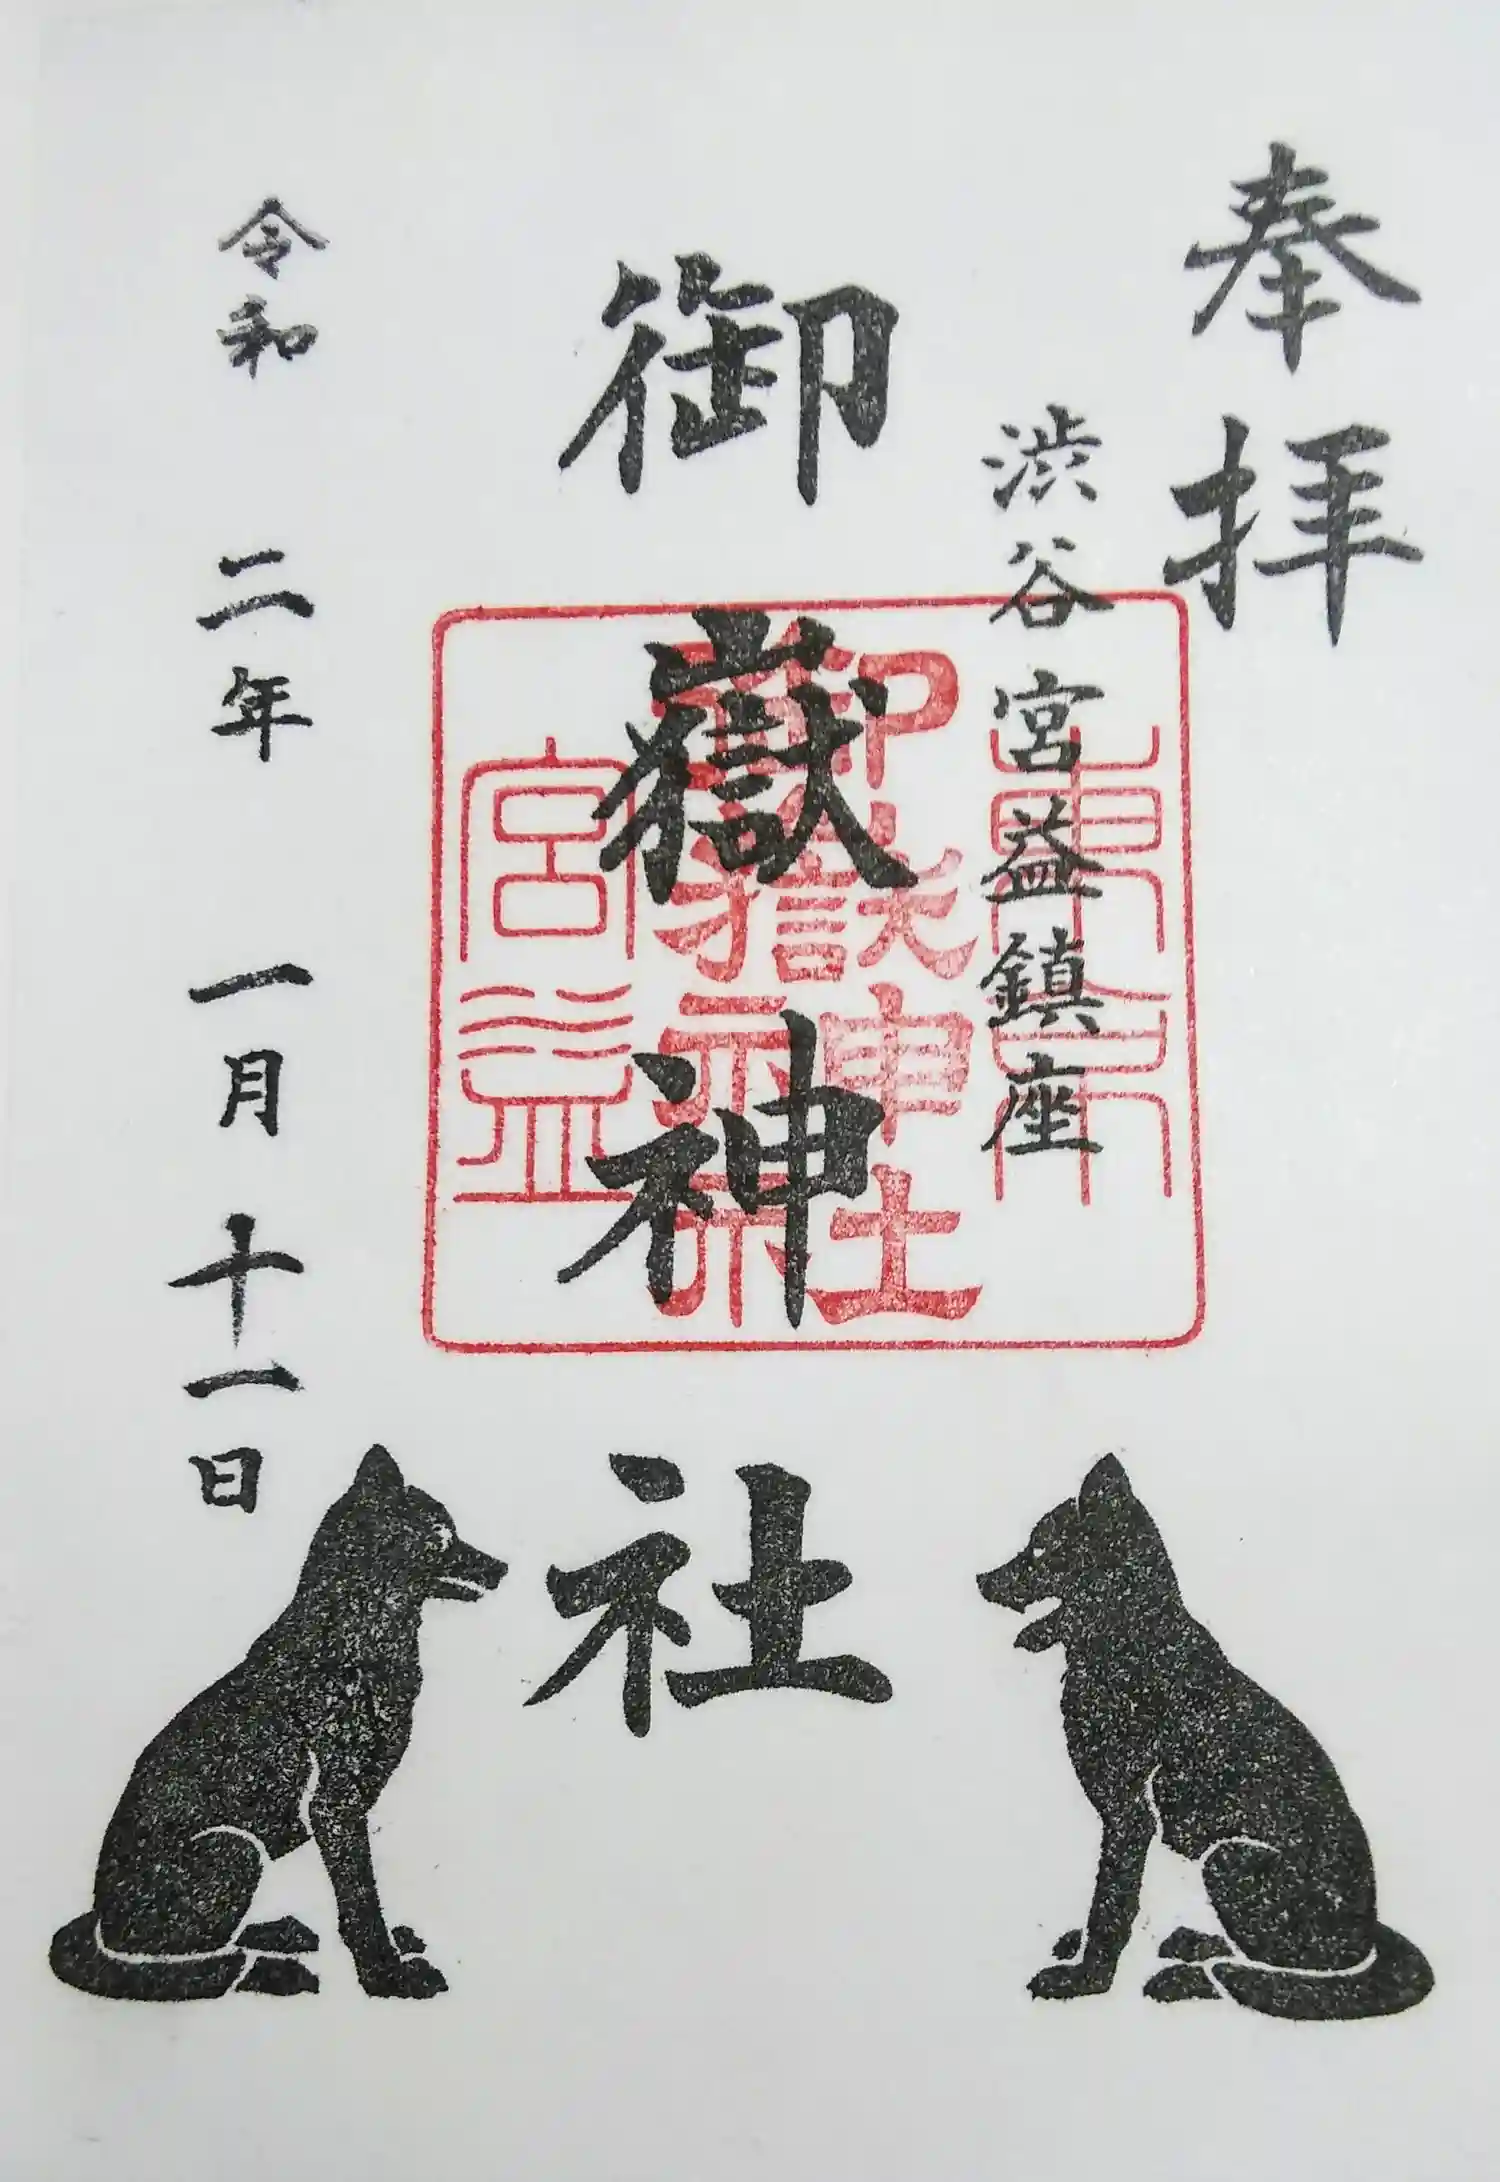 奉拝
渋谷宮益鎮座
御嶽神社
令和二年一月十一日
東京
御嶽神社
宮益